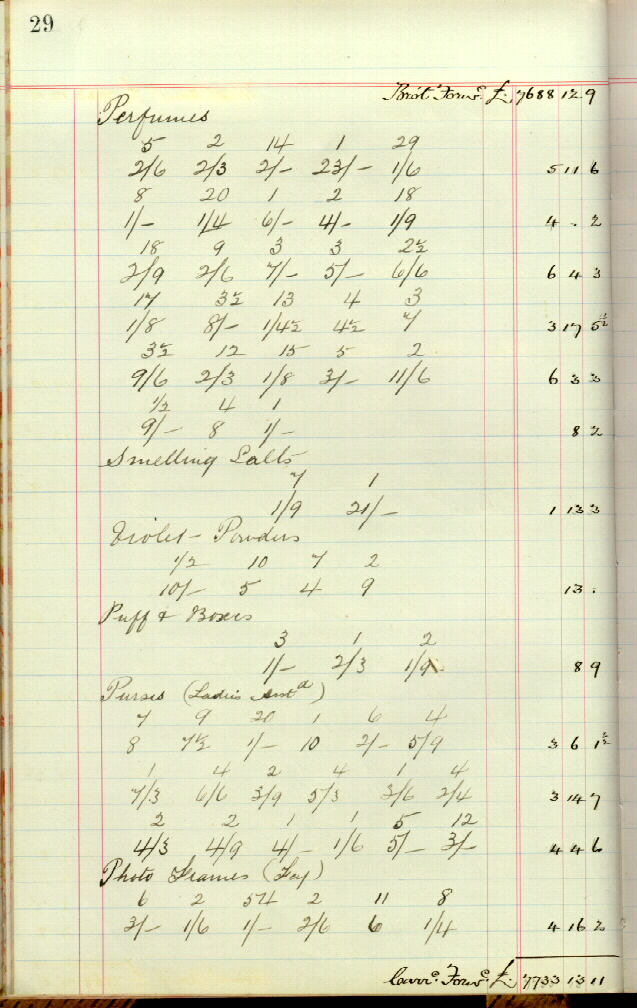 29
Brot. Forwd. £ 7688 12 9
Perfumes
5 2 14 1 29
2/6 2/3 2/- 23/- 1/6 5 11 6
8 20 1 2 18
1/- 1/4 6/- 4/- 1/9 4 . 2
18 9 3 3 2½
2/9 2/6 7/- 5/- 6/6 6 4 3
17 3½ 13 4 3
1/8 8/- 1/4½ 4½ 7 3 17 5½
3½ 12 15 5 2
9/6 2/3 1/8 3/- 11/6 6 3 3
1/2 4 1
9/- 8 1/- 8 2
Smelling Salts
7 1
1/9 21/- 1 13 3
Violet Powders
1/2 10 7 2
10/- 5 4 9 13 .
Puff & Boxes
3 1 2
1/- 2/3 1/9 8 9
Purses (Ladies Asstd)
7 9 20 1 6 4
8 7½ 1/- 10 2/- 5/9 3 6 1½
1 4 2 4 1 4
7/3 6/6 3/9 5/3 3/6 2/4 3 14 7
2 2 1 1 5 12
4/3 4/9 4/- 1/6 5/- 3/- 4 4 6
Photo Frames (Fcy)
6 2 54 2 11 8
3/- 1/6 1/- 2/6 6 1/4 4 16 2
Carrd. Forwd. £ 7733 13 11